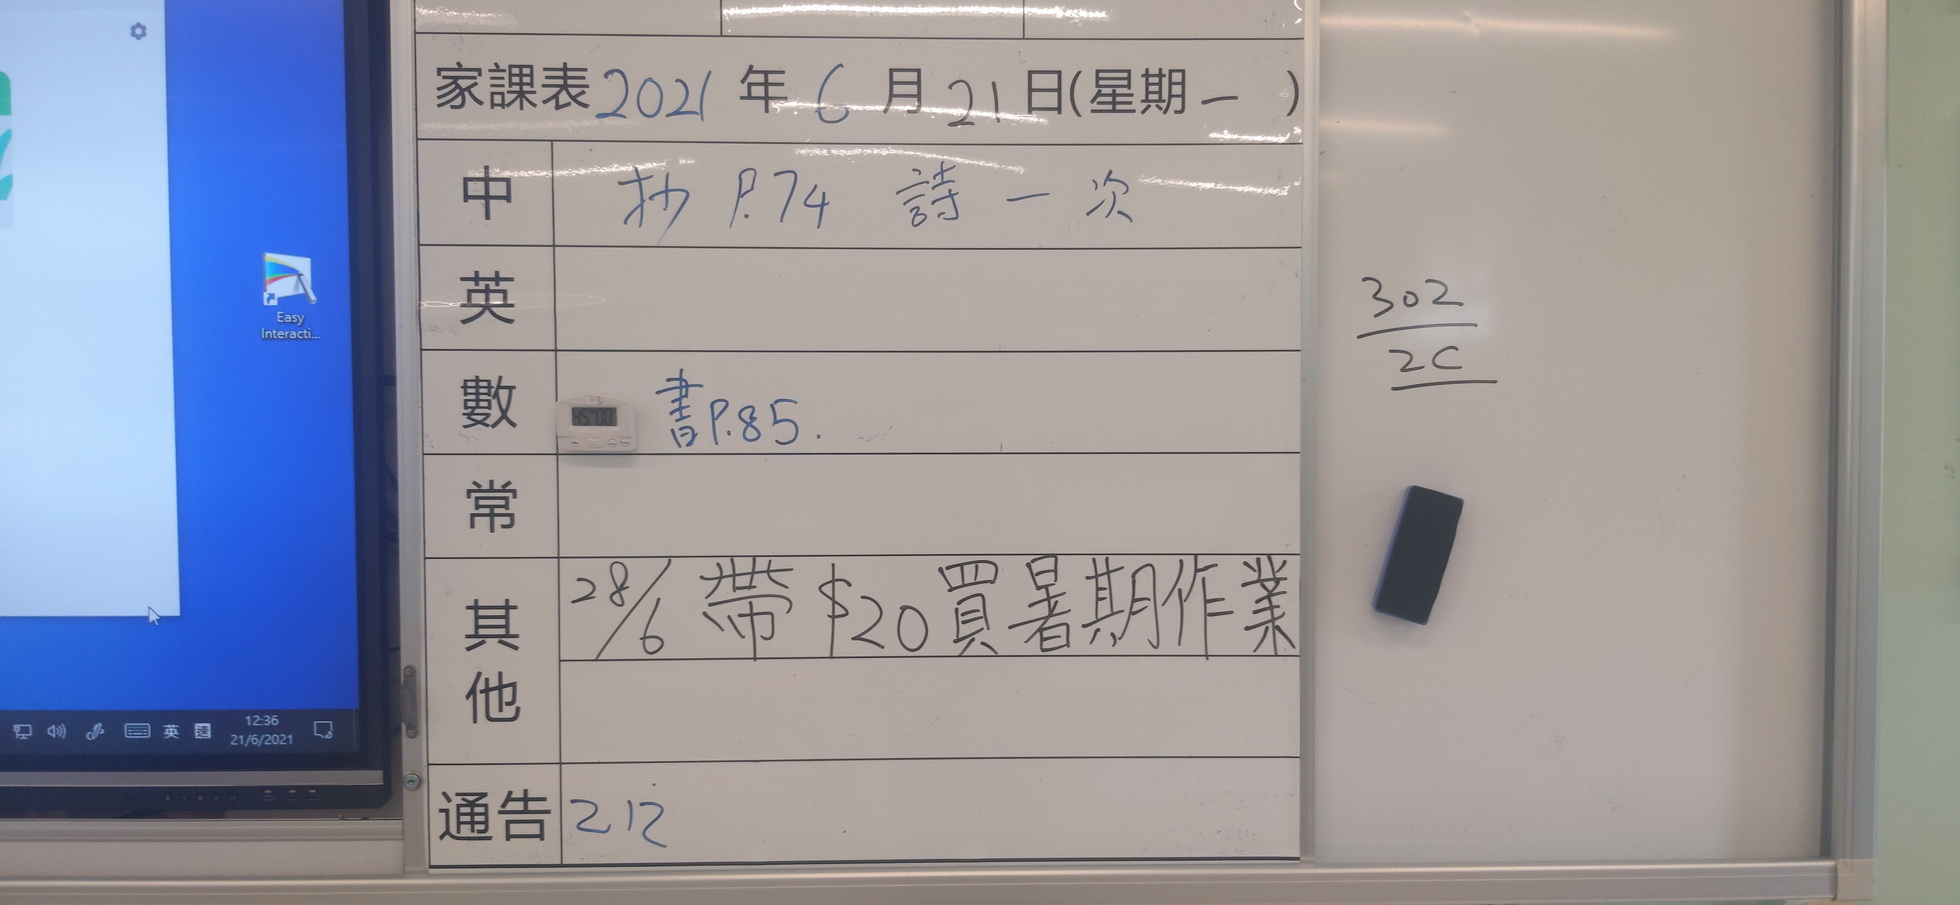 家課表 2021 年 6 月 21 日(星期 一 )
中 抄 P.74 詩 一 次
英
數 書P.85.
常
其他 28/6 帶 $20買暑期作業
通告 212
302
2C
Easy
Interacti...
英
12:36
21/6/2021